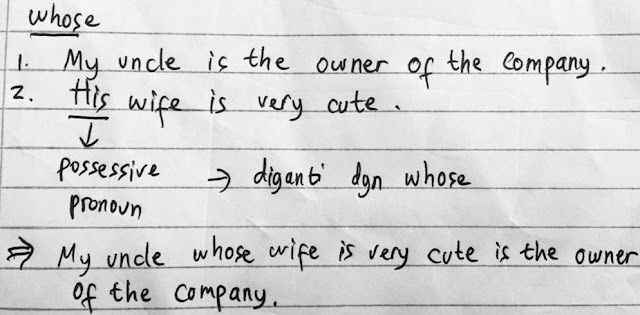 whose
1. My uncle is the owner of the company.
2. His wife is very cute.
↓
possessive → diganti dgn whose
pronoun
⇒ My uncle whose wife is very cute is the owner
of the company.